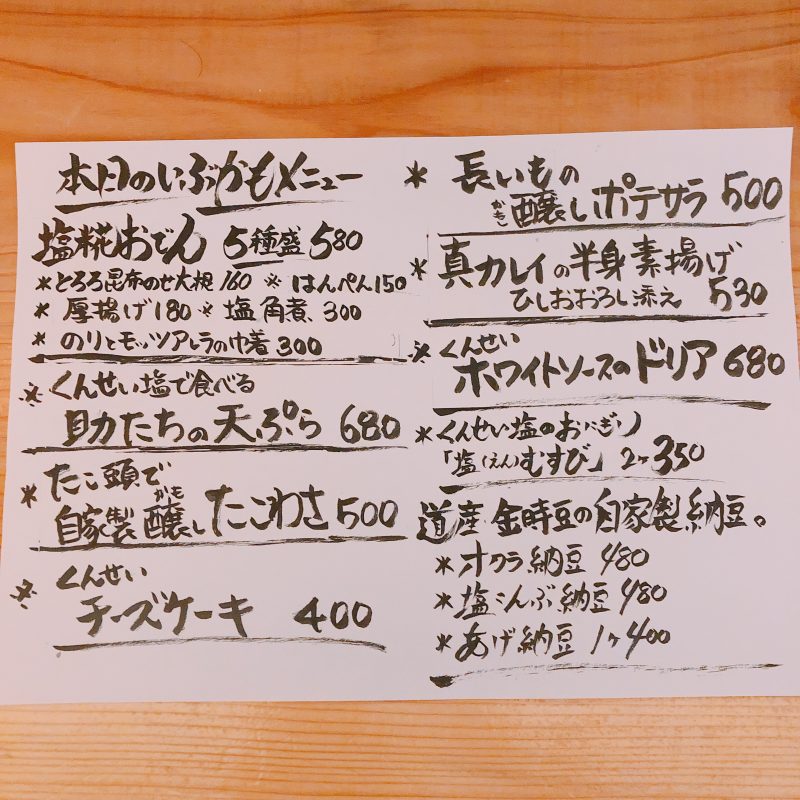 本日のいぶかもメニュー
塩糀おでん 5種盛 580
*とろろ昆布のせ大根 160 ※はんぺん 150
*厚揚げ 180 ※塩角煮、300
*のりとモッツアレラの巾着 300
※くんせい塩で食べる
助たちの天ぷら 680
*たこ頭で
自家製醸したこわさ 500
かも
※くんせい
チーズケーキ 400
*長いもの
醸しポテサラ 500
かもし
*真カレイの半身素揚げ
ひしおおろし添え 530
※くんせい
ホワイトソースのドリア 680
*くんせい塩のおにぎり
「塩(えん)むすび」2ヶ 350
道産金時豆の自家製納豆。
*オクラ納豆 480
*塩こんぶ納豆 480
*あげ納豆 1ヶ 400